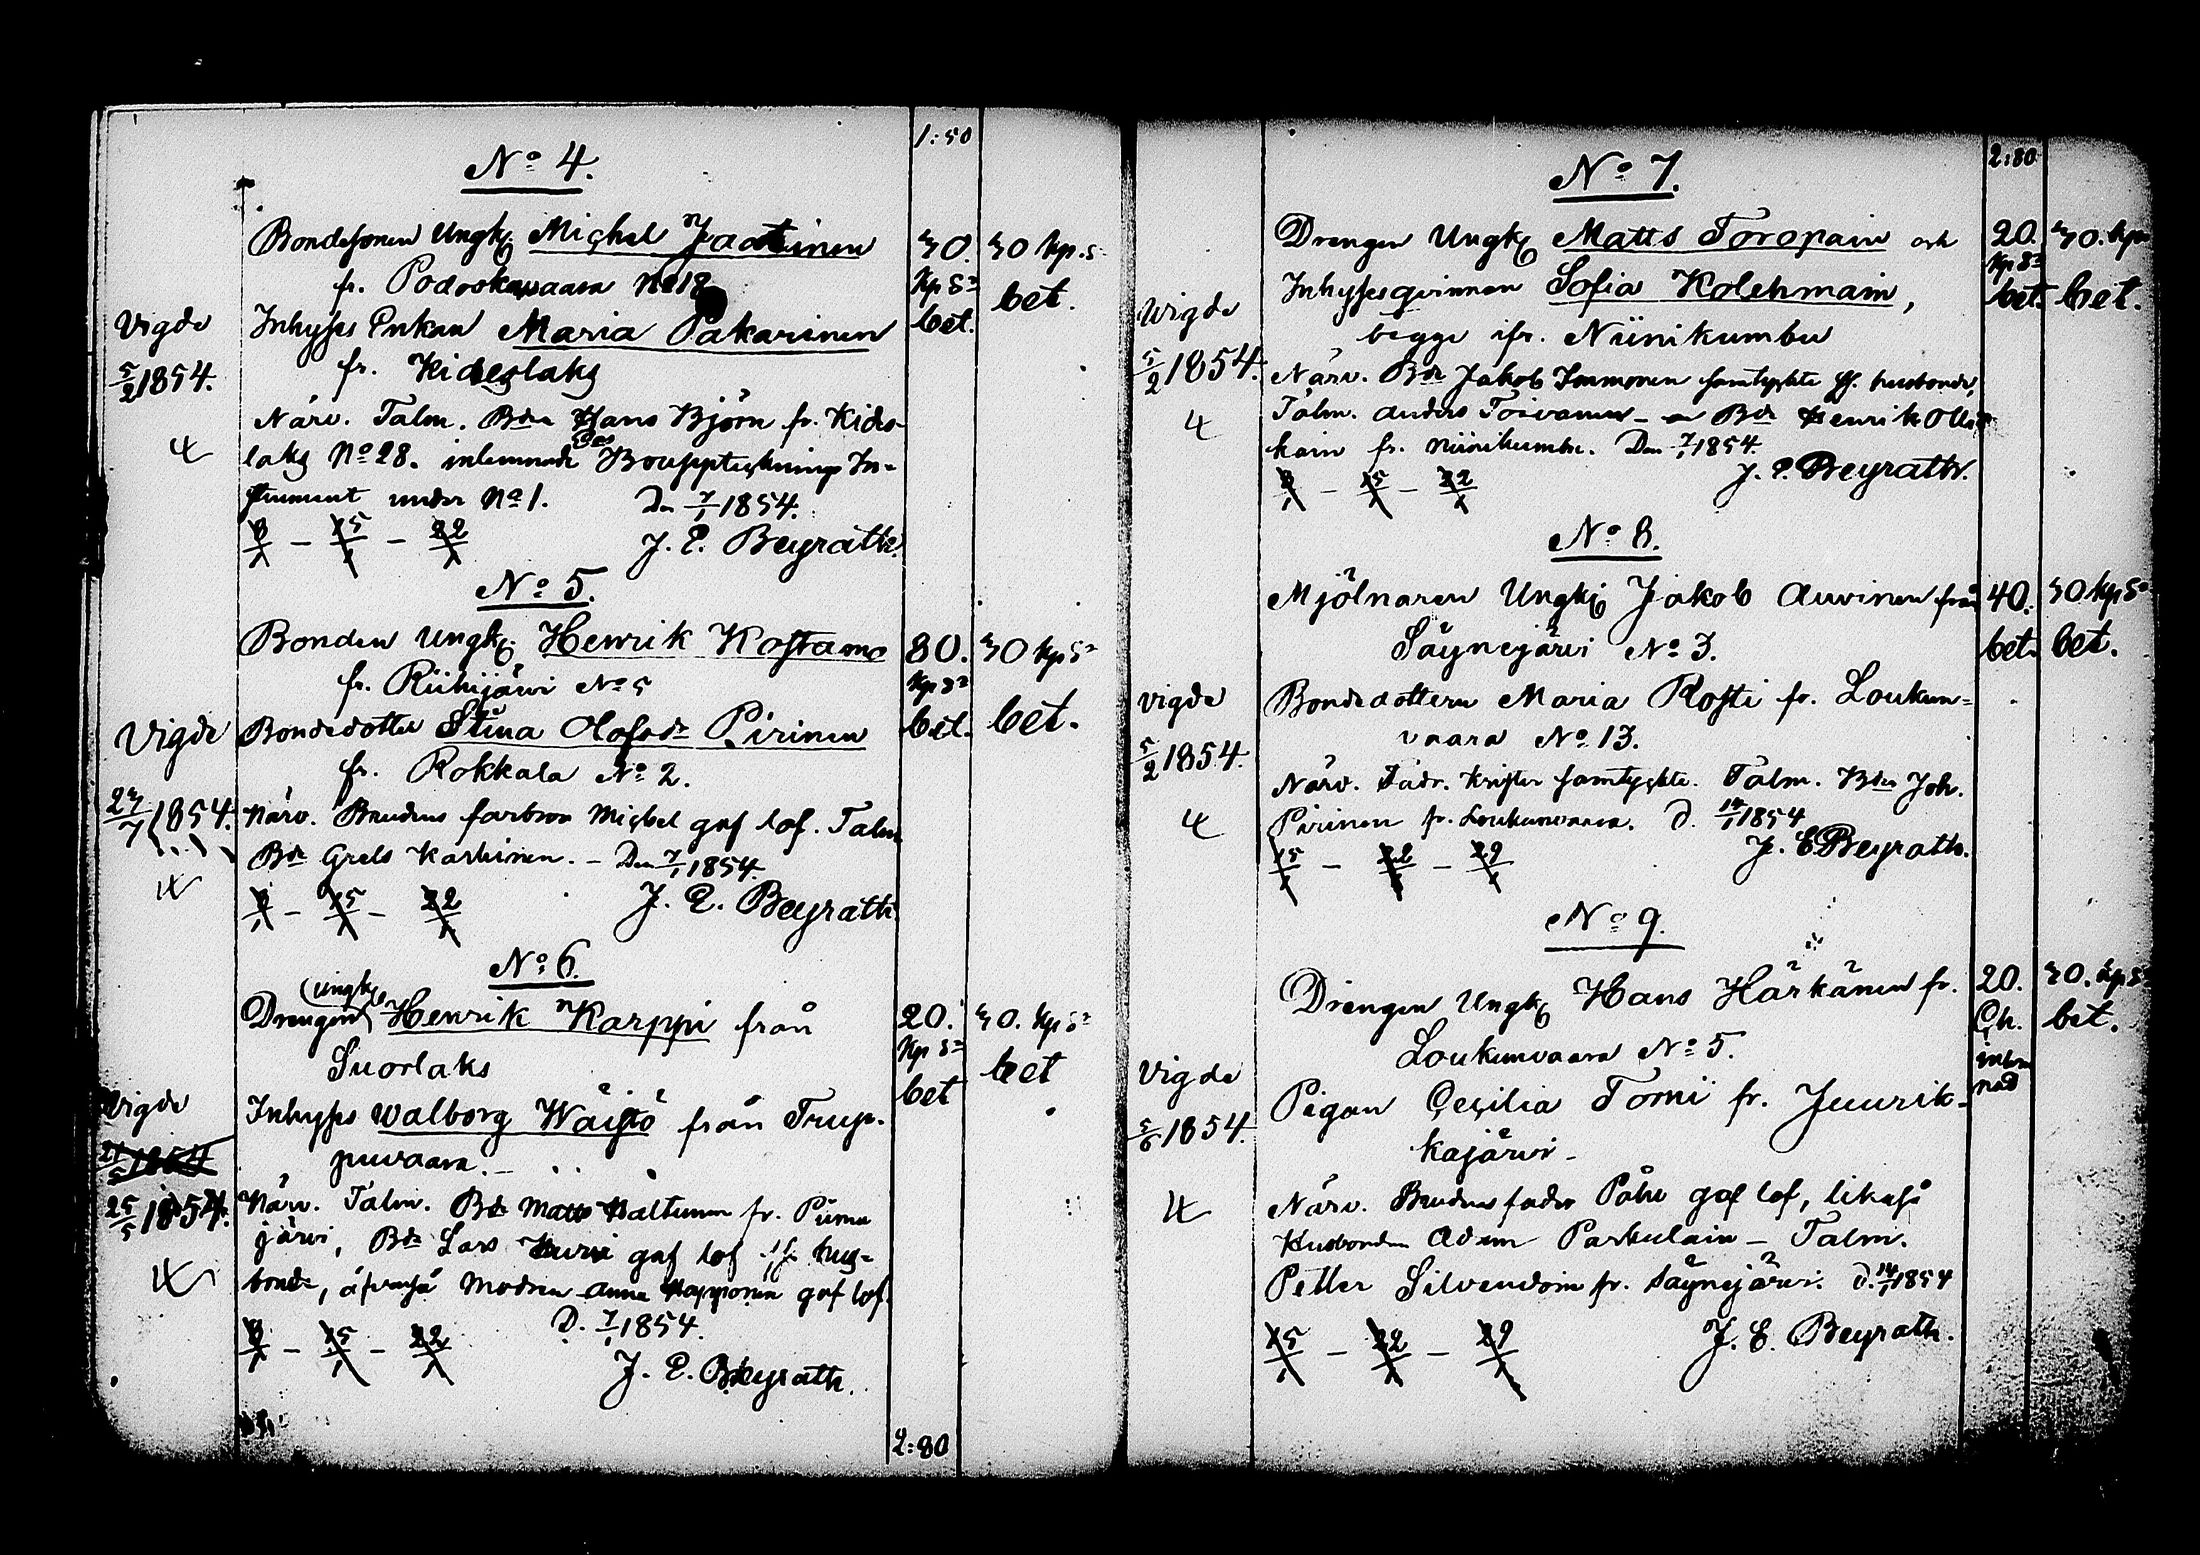 1:50
No 4.
Bondesonen Ungk. Michel Jaatinen
fr. Podoskavaara No 18
30. Kp Sr bet.
30 Kp. S bet.
Vigde
5/2 1854.
Inhyses Enkan Maria Pakarinen
fr. Kideslaks
Närv. Talm. Bdn Hans Björn fr. Kides-
laks No 28. inlemnade Bouppteckning In-
strument under No 1. Den 7/1 1854.
4
8/1 - 15/1 - 22/1
J. E. Beyrath.
No 5.
Bonden Ungk. Henrik Kostamo
fr. Riihijärvi No 5
80. Kp Sr bet.
30 Kp Sr bet.
Vigde
Bondedotter Stina Olofsdr Pirinen
fr. Rokkala No 2.
/7 1854.
Närv. Brudens farbror Michel gaf lof. Talm
Bdr Grels Karhinen. - Den 7/1 1854.
4
8/1 - 15/1 - 22/1
J. E. Beyrath
No 6.
(Ungk.
Drengen Henrik Karppi från
Suorlaks
20. Kp Sr bet
30. Kp Sr bet
Vigde
Inhyses Walborg Wäistö från Trup-
puvaara. -
1854
25/5 1854.
Närv. Talm. Bdr Matts Waltunen fr. Puna
järvi, Bdr Lars gaf lof hus-
bonde, äfvenså Modren Anna gaf lof.
D. 7/1 1854.
4
8/1 - 15/1 - 22/1
J. E. Beyrath.
2:80
2:80
No 7.
Drengen Ungk. Matts Toropain och
20. Kp Sr bet.
30. Kp bet.
Vigde
5/2 1854.
Inhysesqvinnan Sofia Kolehmain,
begge ifr. Niinikumbu
Närv. Bdr Jakob Immonen samtyckte husbonde,
Talm. Anders Toivanen - Bdr Henrik
kain fr. Niinikumbu. Den 7/1 1854.
4
8/1 - 15/1 - 22/1
J. E. Beyrath.
No 8.
Mjölnaren Ungk. Jakob Auvinen från
Säynejärvi No 3.
40. bet.
30 Kp Sr bet.
Vigde
5/2 1854.
Bondedottern Maria Rosti fr. Loukun-
vaara No 13.
Närv. Fadr. Krister samtyckte. Talm. Bdn Joh.
Pirinen fr. Loukunvaara. D. 14/1 1854
4
15/1 - 22/1 - 29/1
J. E. Beyrath.
No 9.
Drengen Ungk. Hans Härkänen fr.
Loukunvaara No 5.
20.
30. Kp Sr bet.
Vigde
5/6 1854.
Pigan Cecilia Tomi fr. Juurik-
kajärvi -
Närv. Brudens fader Påhr gaf lof, likaså
Husbonden Adam Parkulain - Talm.
Petter Silvendoin fr. Säynejärvi. D. 14/1 1854
4
15/1 - 22/1 - 29/1
J. E. Beyrath.